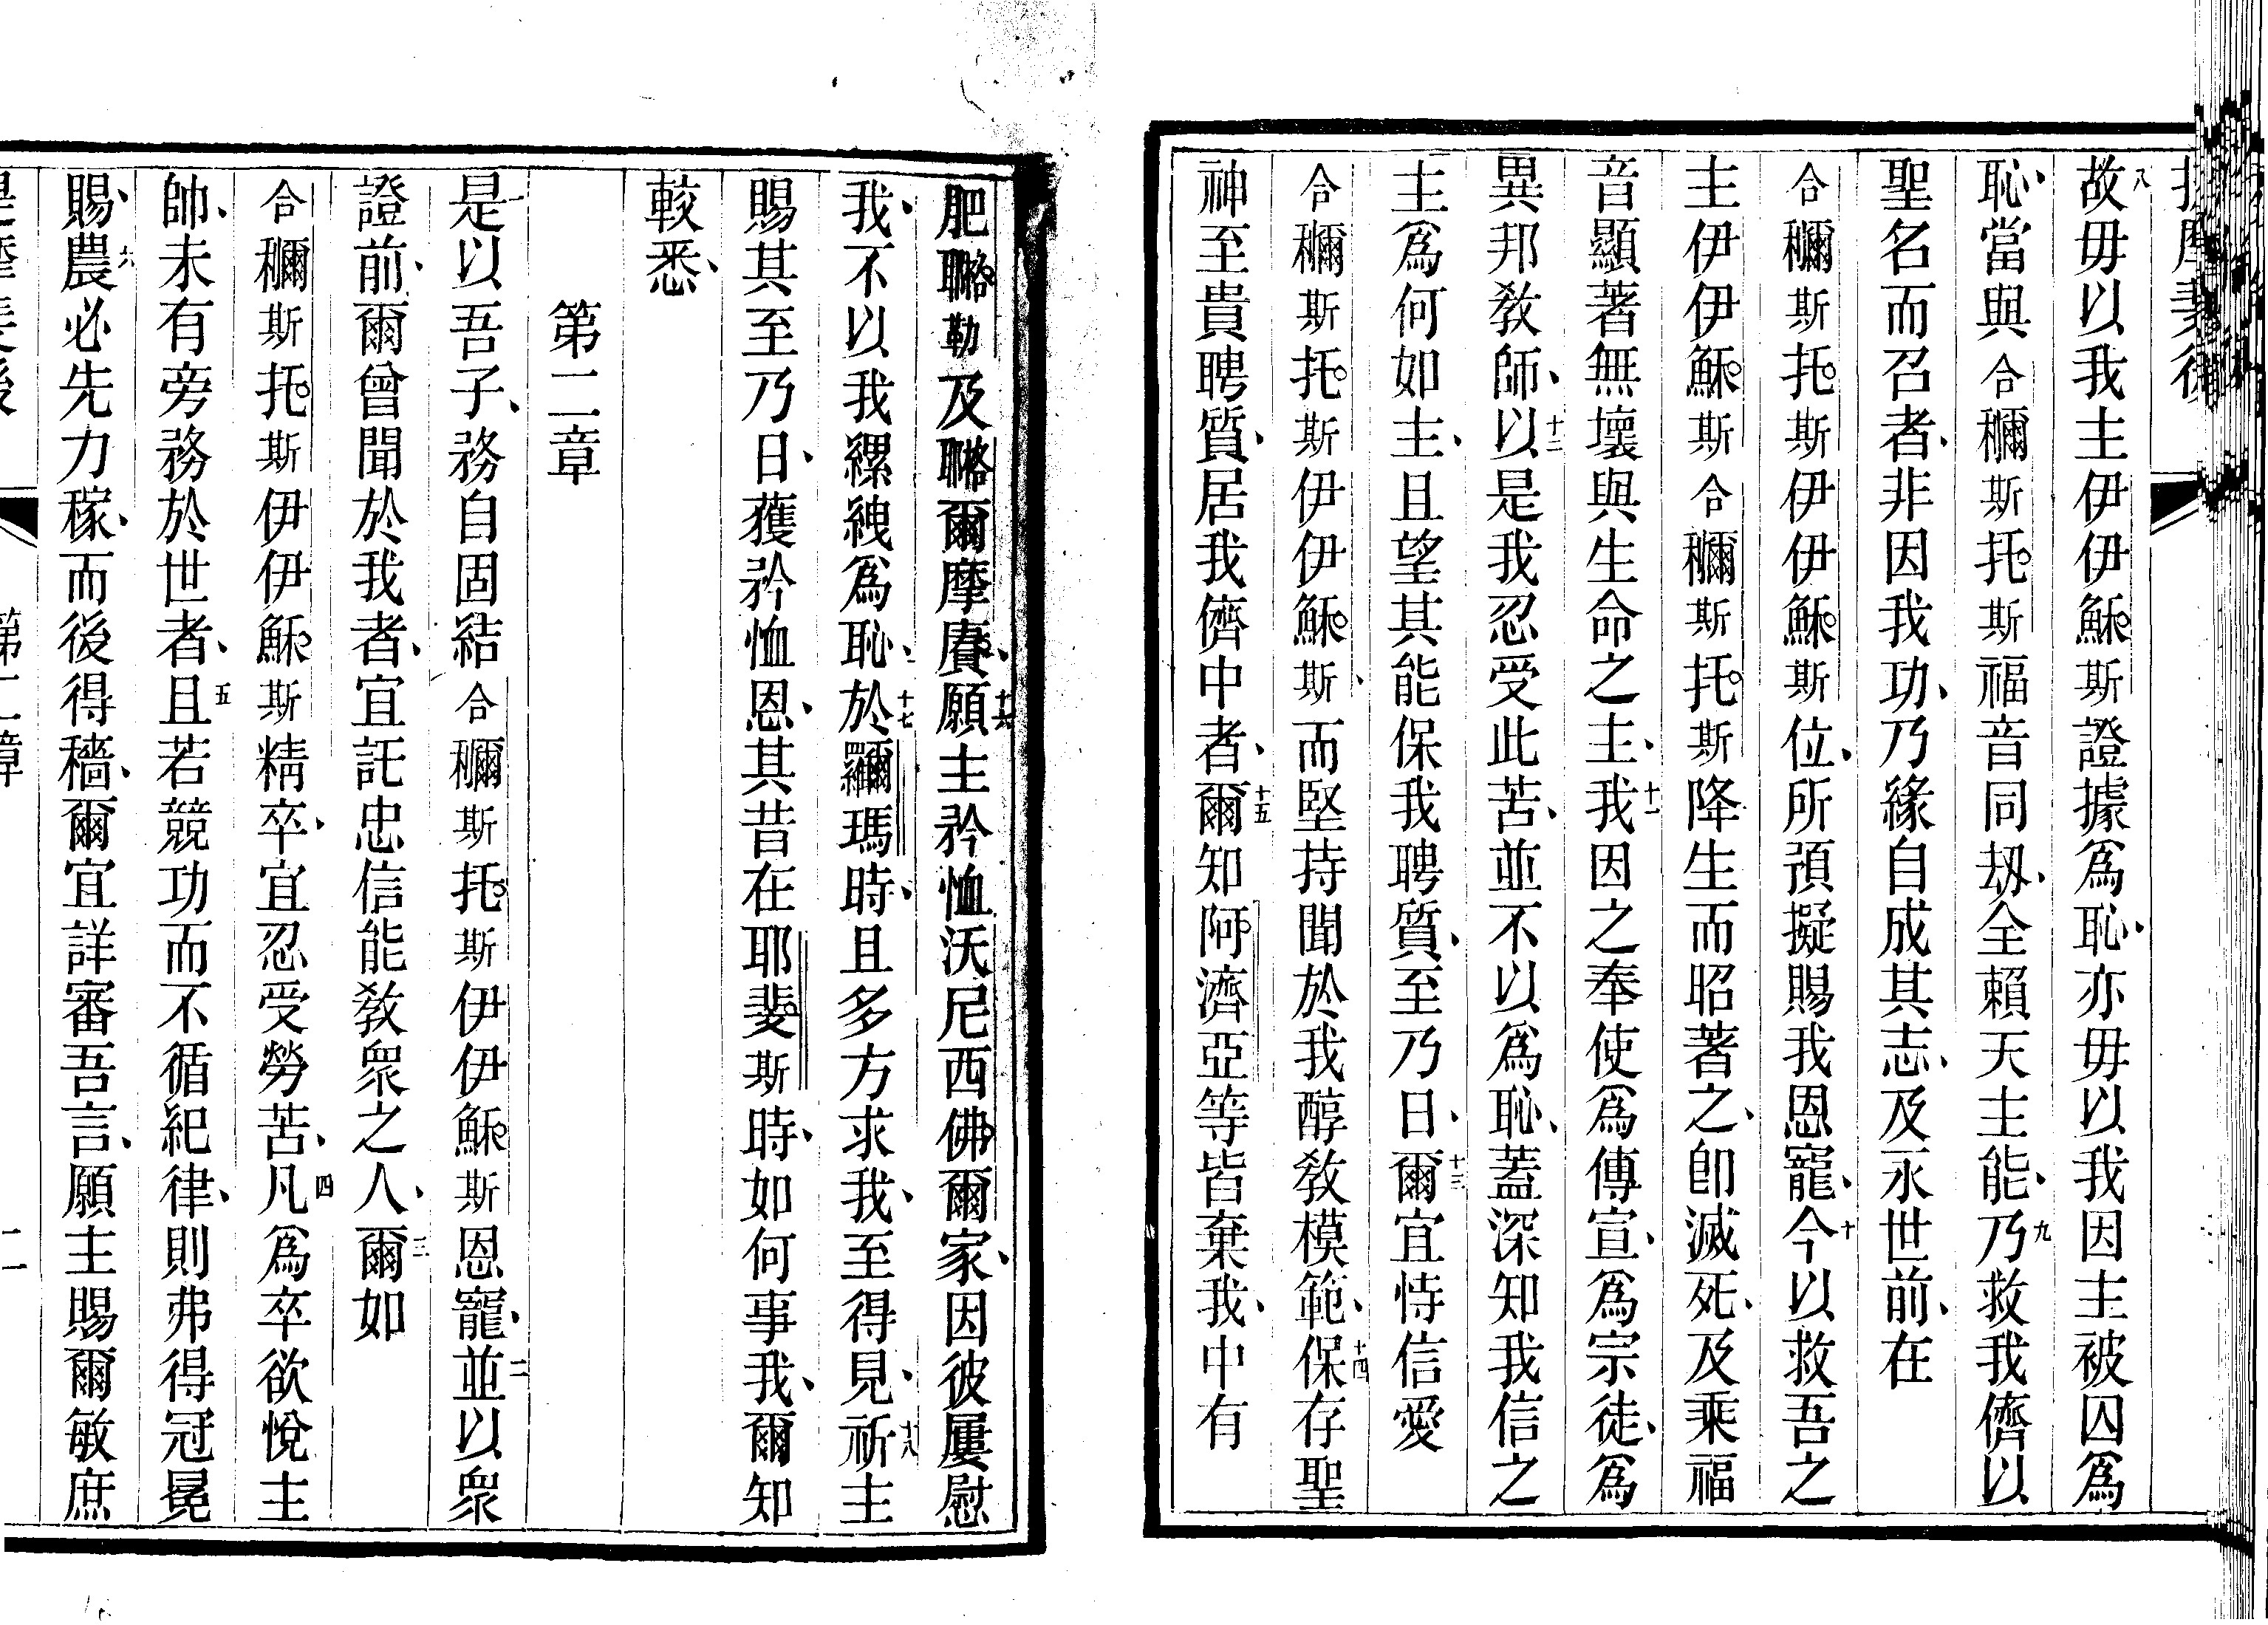 八故毋以我主伊伊穌斯證據爲恥、亦毋以我因主被囚爲
恥、當與合𥽥斯托斯福音同刼、全賴天主能、九乃救我儕以
聖名而召者、非因我功、乃緣自成其志、及永世前、在
合𥽥斯托斯伊伊穌斯位、所預擬賜我恩寵、十今以救吾之
主伊伊穌斯合𥽥斯托斯降生而昭著之、卽滅死、及乘福
音顯著無壞與生命之主、十一我因之奉使爲傳宣、爲宗徒、爲
異邦敎師、十二以是我忍受此苦、並不以爲恥、蓋深知我信之
主爲何如主、且望其能保我聘質、至乃日、十三爾宜恃信愛
合𥽥斯托斯伊伊穌斯、而堅持聞於我醇敎模範、十四保存聖
神至貴聘質、居我儕中者、十五爾知阿濟亞等皆棄我、中有
肥㗉勒及㗉爾摩賡、十六願主矜恤沃尼西佛爾家、因彼屢慰
我、不以我縲絏爲恥、十七於羅瑪時、且多方求我、至得見、十八祈主
賜其至乃日、獲矜恤恩、其昔在耶斐斯時、如何事我、爾知
較悉、
第二章
一是以吾子、務自固結合𥽥斯托斯伊伊穌斯恩寵、二並以衆
證前、爾曾聞於我者、宜託忠信能敎衆之人、三爾如
合𥽥斯托斯伊伊穌斯精卒、宜忍受勞苦、四凡爲卒欲悅主
帥、未有旁務於世者、五且若競功而不循紀律、則弗得冠冕
賜、六農必先力稼、而後得穡、爾宜詳審吾言、願主賜爾敏庶
第二章
二